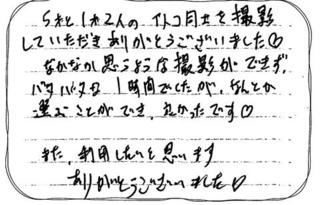 5才と1才2人のイトコ同士を撮影
していただきありがとうございました♡
なかなか思うような撮影ができず、
バタバタな1時間でしたが、なんとか
選ぶことができ、良かったです♡
また、利用したいと思います
ありがとうございました♡